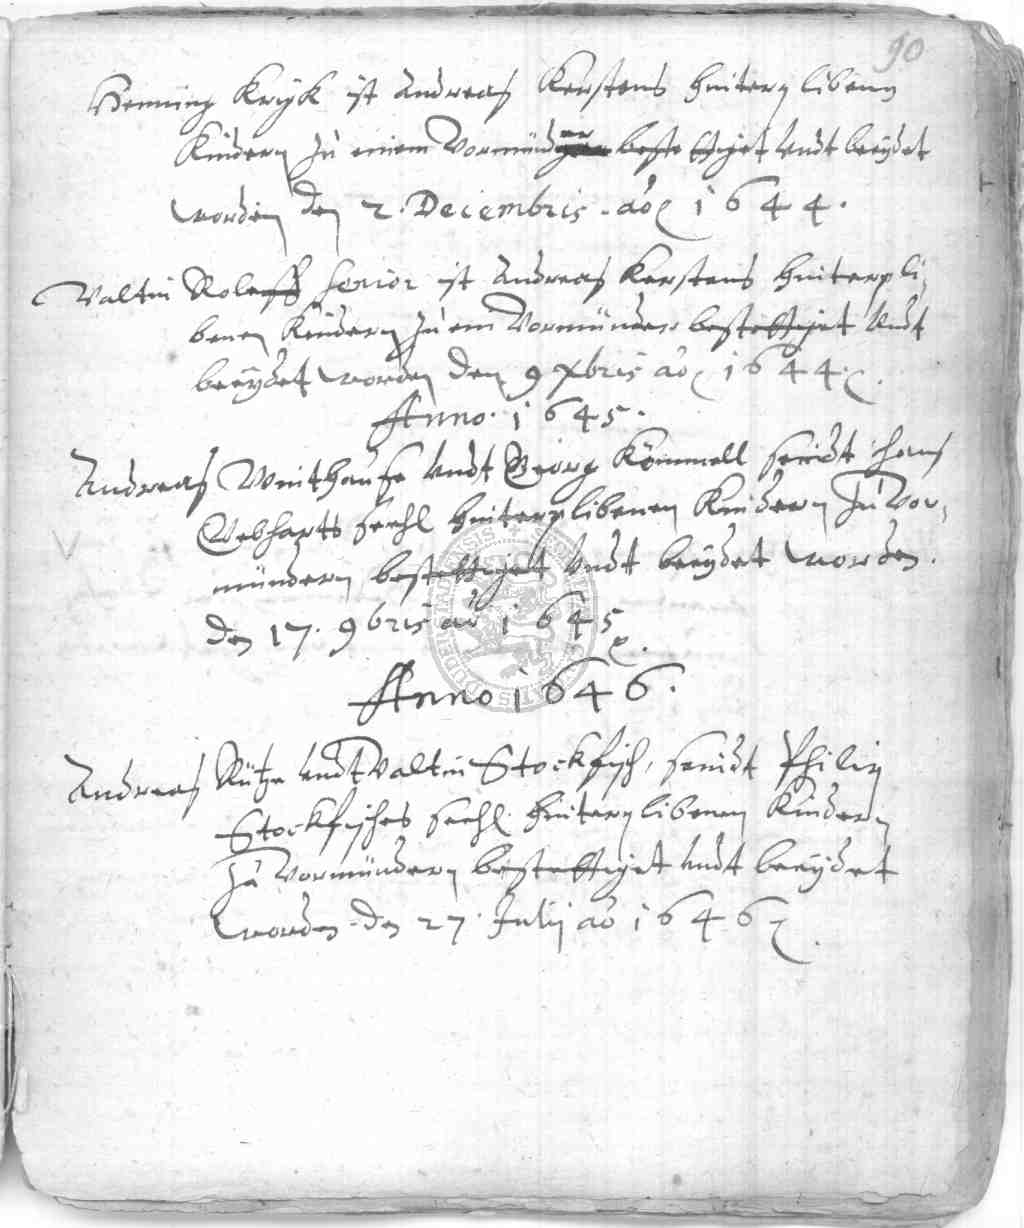 90
Henning Kryk ist Andreas Kerstens hinterplibenen
Kindern zu einem Vormünder bestettiget undt beeydet
worden den 2. Decembris. ao 1644.
Valtin Roleff senior ist Andreas Kerstens hinterpli,
benen Kindern zu ein Vormünder bestettiget undt
beeydet worden den 9 Xbris ao 1644.
Anno. 1645.
Andreas Withause undt Georg Kömmell seindt Hans
Gebharts seehl hinterplibenen Kindern zu Vor,
mündern bestettiget undt beeydet worden.
den 17. 9bris ao 1645
Anno 1646.
Andreas Kütze undt Valtin Stockfisch, seindt Philip
Stockfisches seehl. hinterplibenen Kindern
zu Vormündern bestettiget undt beeydet
worden den 27. Julij ao 1646